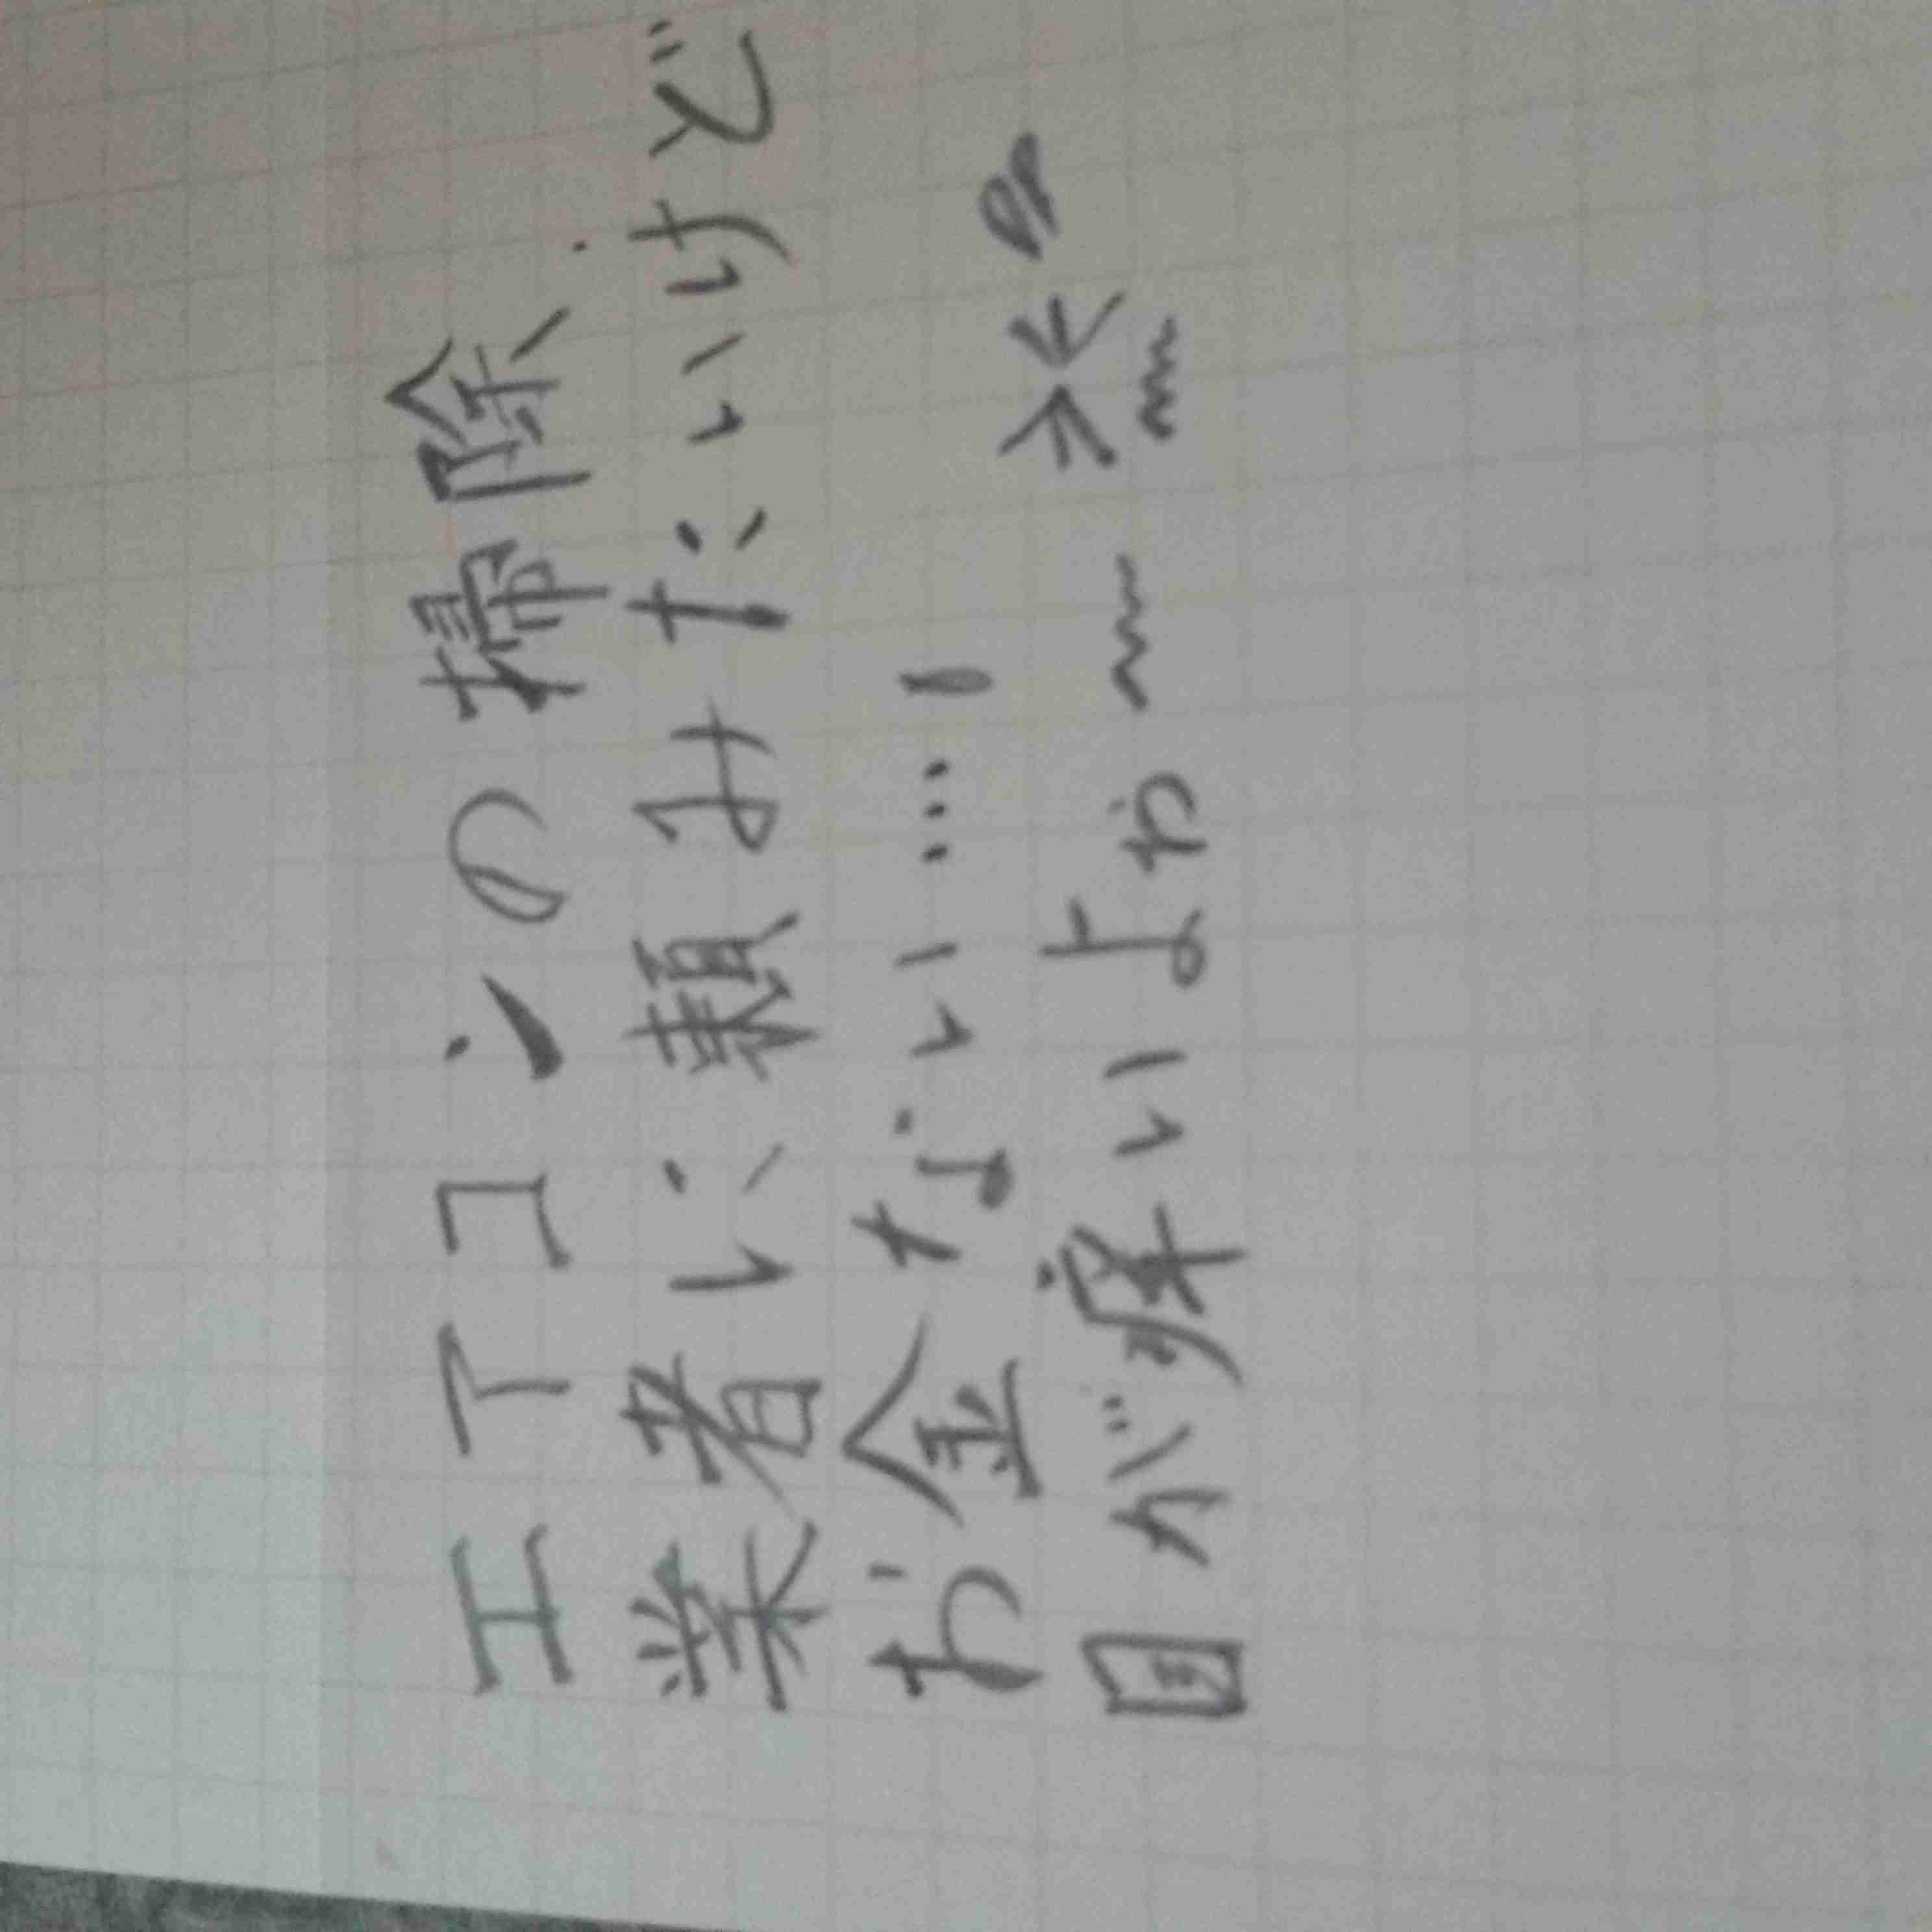 エアコンの掃除
業者に頼みたいけど
お金ない…!
目が痒いよぉ〜